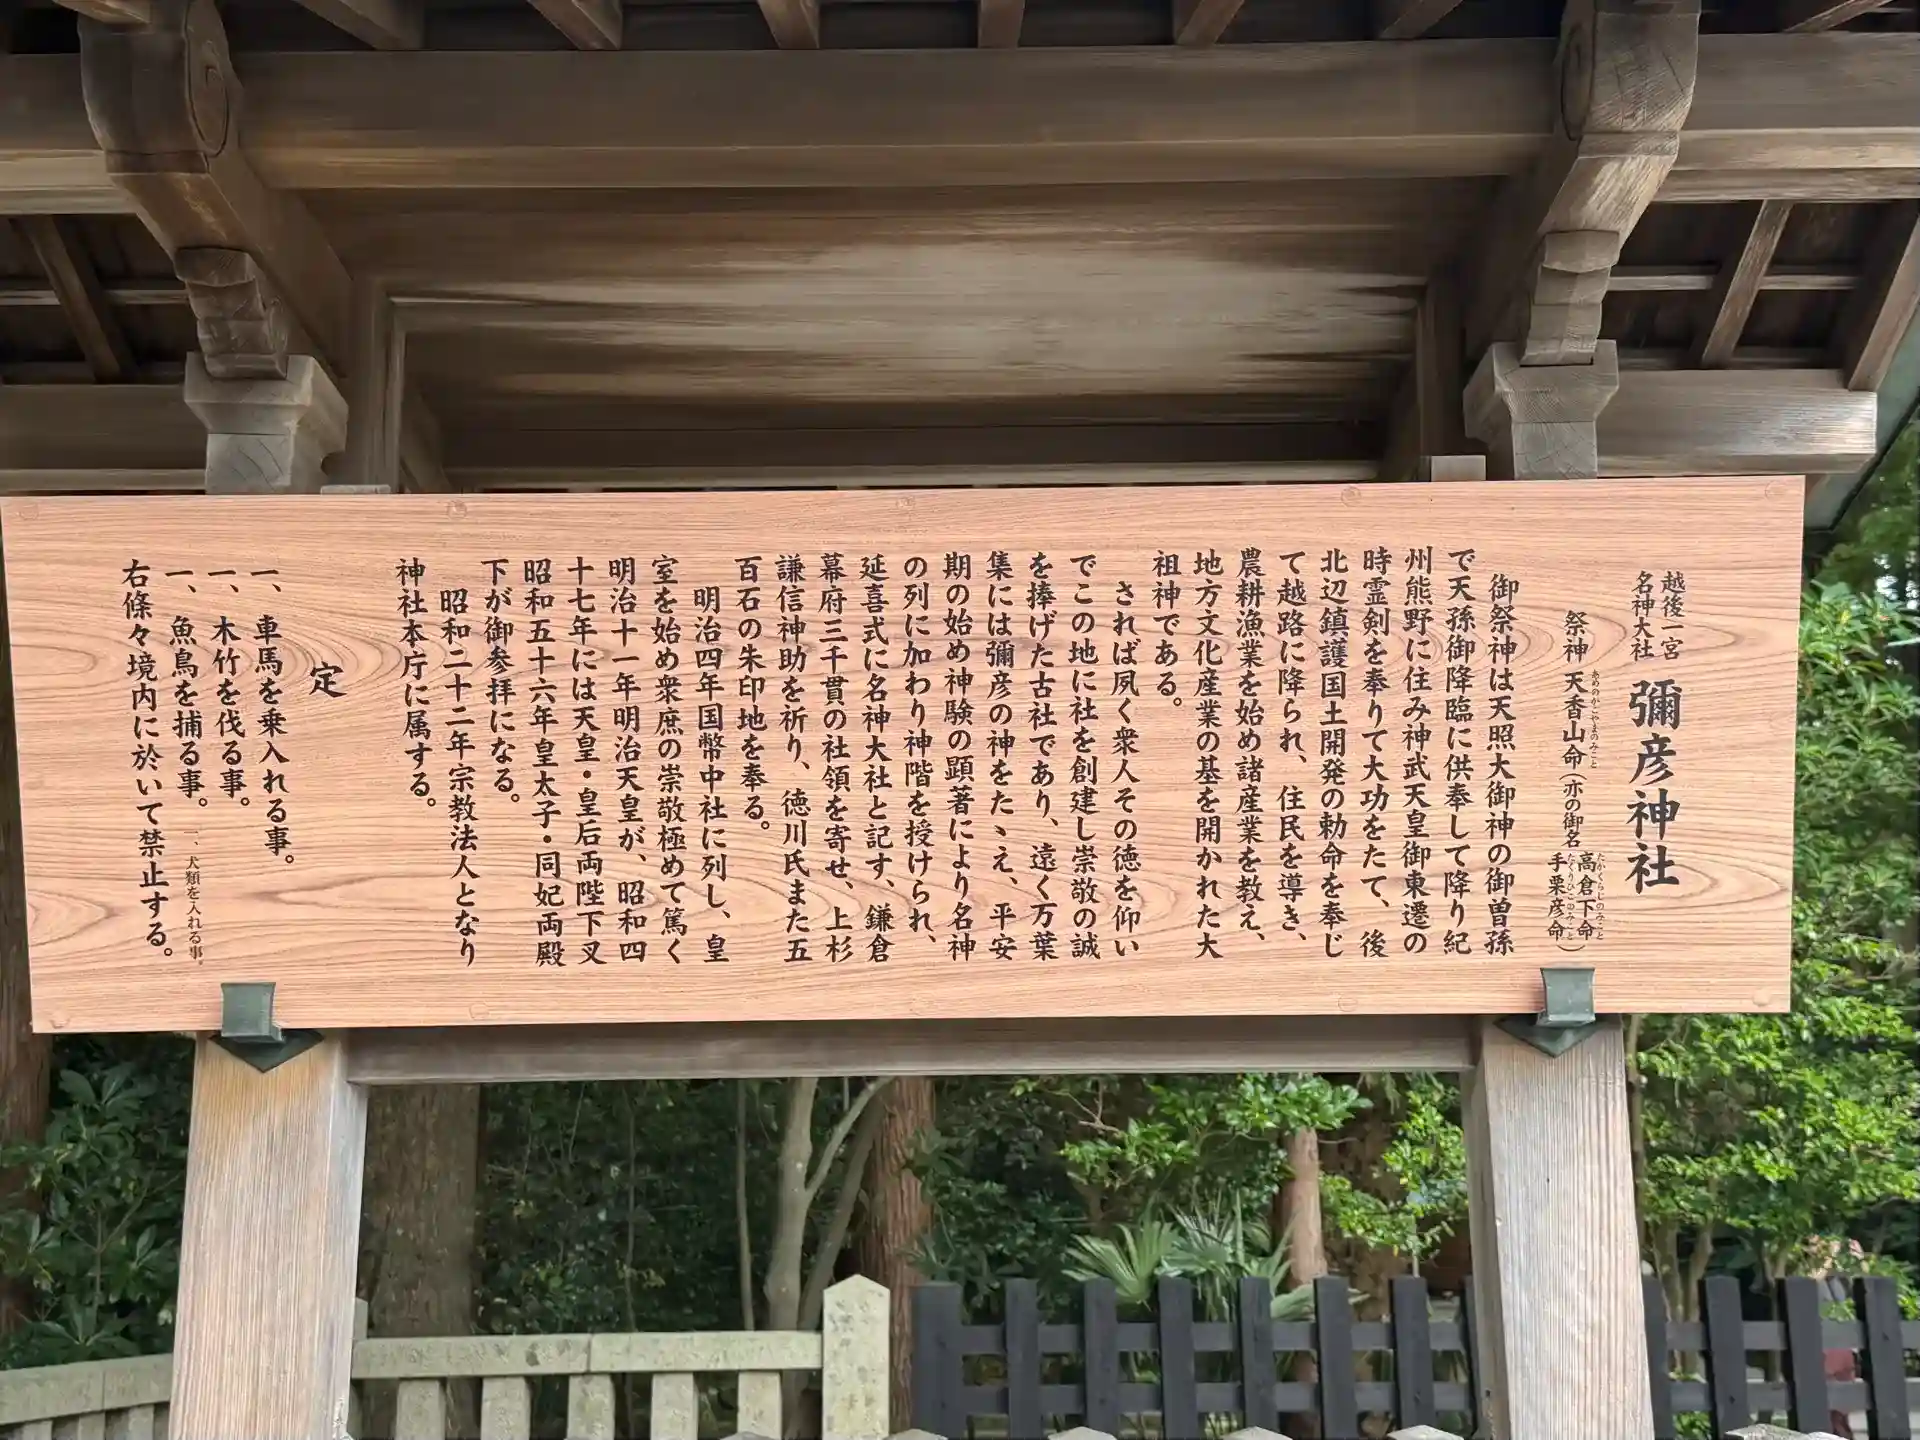 越後一宮
名神大社
彌彦神社
祭神 天香山命(亦の御名 高倉下命
手栗彦命)
あめのかごやまのみこと
たかくらじのみこと
たくりひこのみこと
御祭神は天照大御神の御曽孫
で天孫御降臨に供奉して降り紀
州熊野に住み神武天皇御東遷の
時霊剣を奉りて大功をたて、後
北辺鎮護国土開発の勅命を奉じ
て越路に降られ、住民を導き、
農耕漁業を始め諸産業を教え、
地方文化産業の基を開かれた大
祖神である。
されば夙く衆人その徳を仰い
でこの地に社を創建し崇敬の誠
を捧げた古社であり、遠く万葉
集には彌彦の神をたゝえ、平安
期の始め神験の顕著により名神
の列に加わり神階を授けられ、
延喜式に名神大社と記す、鎌倉
幕府三千貫の社領を寄せ、上杉
謙信神助を祈り、徳川氏また五
百石の朱印地を奉る。
明治四年国幣中社に列し、皇
室を始め衆庶の崇敬極めて篤く
明治十一年明治天皇が、昭和四
十七年には天皇・皇后両陛下又
昭和五十六年皇太子・同妃両殿
下が御参拝になる。
昭和二十二年宗教法人となり
神社本庁に属する。
定
一、車馬を乗入れる事。
一、木竹を伐る事。
一、魚鳥を捕る事。
一、犬類を入れる事。
右條々境内に於いて禁止する。